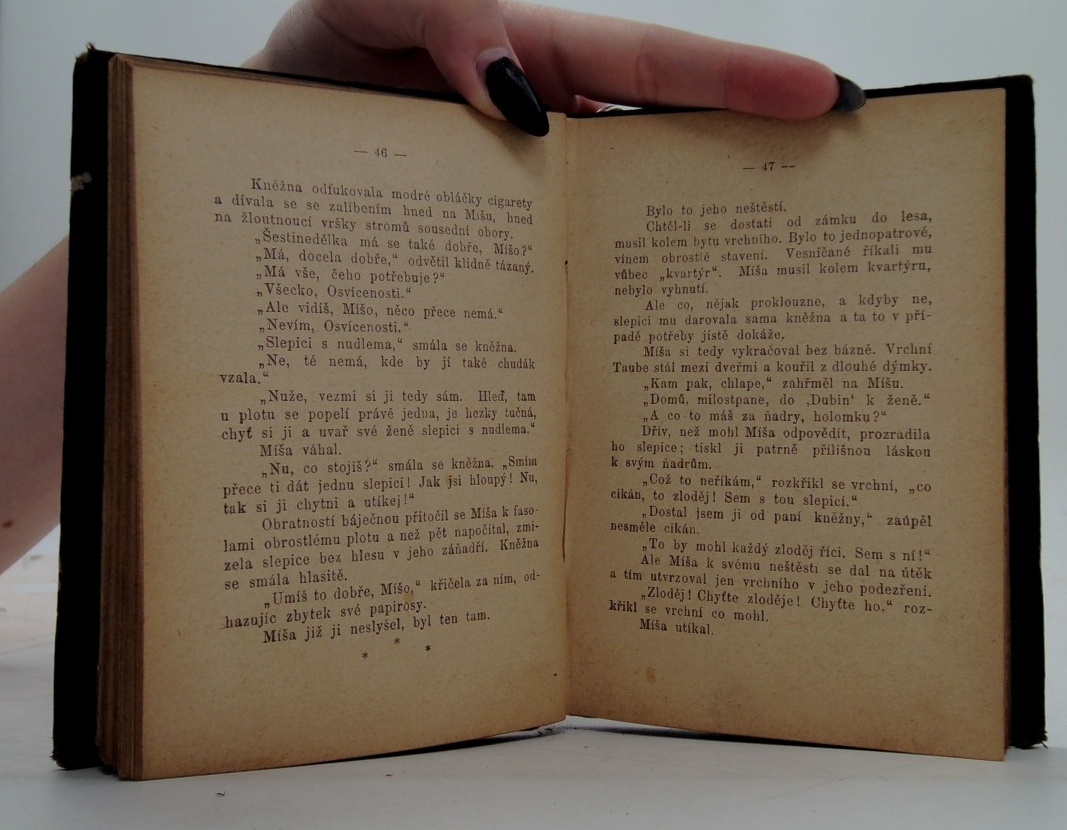 — 46 —
Kněžna odfukovala modré obláčky cigarety
a dívala se se zalíbením hned na Míšu, hned
na žloutnoucí vršky stromů sousední obory.
„Šestinedělka má se také dobře, Míšo?“
„Má, docela dobře,“ odvětil klidně tázaný.
„Má vše, čeho potřebuje?“
„Všecko, Osvícenosti.“
„Ale vidíš, Míšo, něco přece nemá.“
„Nevím, Osvícenosti.“
„Slepici s nudlema,“ smála se kněžna.
„Ne, té nemá, kde by jí také chudák
vzala.“
„Nuže, vezmi si ji tedy sám. Hleď, tam
u plotu se popelí právě jedna, je hezky tučná,
chyť si ji a uvař své ženě slepici s nudlema.“
Míša váhal.
„Nu, co stojíš?“ smála se kněžna. „Smím
přece ti dát jednu slepici! Jak jsi hloupý! Nu,
tak si ji chytni a utíkej!“
Obratností báječnou přitočil se Míša k faso-
lami obrostlému plotu a než pět napočítal, zmi-
zela slepice bez hlesu v jeho záňadří. Kněžna
se smála hlasitě.
„Umíš to dobře, Míšo,“ křičela za ním, od-
hazujíc zbytek své papirosy.
Míša již ji neslyšel, byl ten tam.
* * *
— 47 —
Bylo to jeho neštěstí.
Chtěl-li se dostati od zámku do lesa,
musil kolem bytu vrchního. Bylo to jednopatrové,
vínem obrostlé stavení. Vesničané říkali mu
vůbec „kvartýr“. Míša musil kolem kvartýru,
nebylo vyhnutí.
Ale co, nějak proklouzne, a kdyby ne,
slepici mu darovala sama kněžna a ta to v pří-
padě potřeby jistě dokáže.
Míša si tedy vykračoval bez bázně. Vrchní
Taube stál mezi dveřmi a kouřil z dlouhé dýmky.
„Kam pak, chlape,“ zahřměl na Míšu.
„Domů, milostpane, do ‚Dubin‘ k ženě.“
„A co to máš za ňadry, holomku?“
Dřív, než mohl Míša odpovědít, prozradila
ho slepice; tiskl ji patrně přílišnou láskou
k svým ňadrům.
„Což to neříkám,“ rozkřikl se vrchní, „co
cikán, to zloděj! Sem s tou slepicí.“
„Dostal jsem ji od paní kněžny,“ zaúpěl
nesměle cikán.
„To by mohl každý zloděj říci. Sem s ní!“
Ale Míša k svému neštěstí se dal na útěk
a tím utvrzoval jen vrchního v jeho podezření.
„Zloděj! Chyťte zloděje! Chyťte ho,“ roz-
křikl se vrchní co mohl.
Míša utíkal.